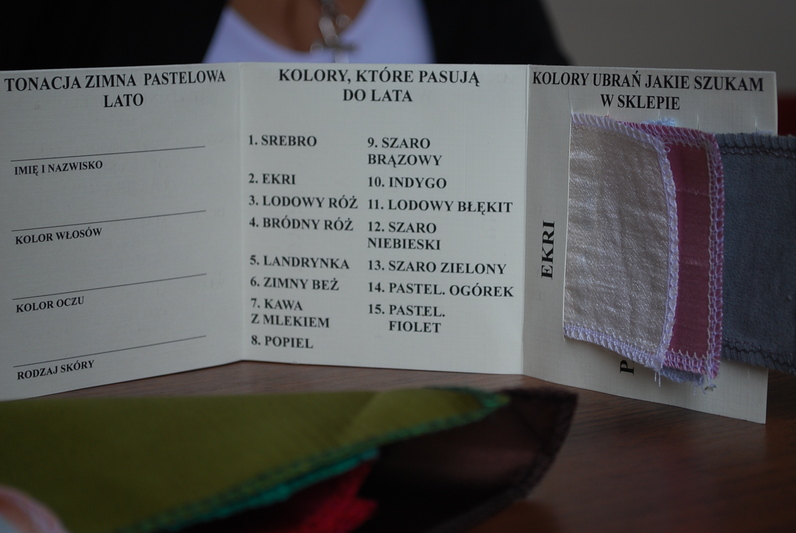 TONACJA ZIMNA PASTELOWA
LATO
IMIĘ I NAZWISKO
KOLOR WŁOSÓW
KOLOR OCZU
RODZAJ SKÓRY
KOLORY, KTÓRE PASUJĄ
DO LATA
1. SREBRO
2. EKRI
3. LODOWY RÓŻ
4. BRÓDNY RÓŻ
5. LANDRYNKA
6. ZIMNY BEŻ
7. KAWA
Z MLEKIEM
8. POPIEL
9. SZARO
BRĄZOWY
10. INDYGO
11. LODOWY BŁĘKIT
12. SZARO
NIEBIESKI
13. SZARO ZIELONY
14. PASTEL. OGÓREK
15. PASTEL.
FIOLET
KOLORY UBRAŃ JAKIE SZUKAM
W SKLEPIE
EKRI